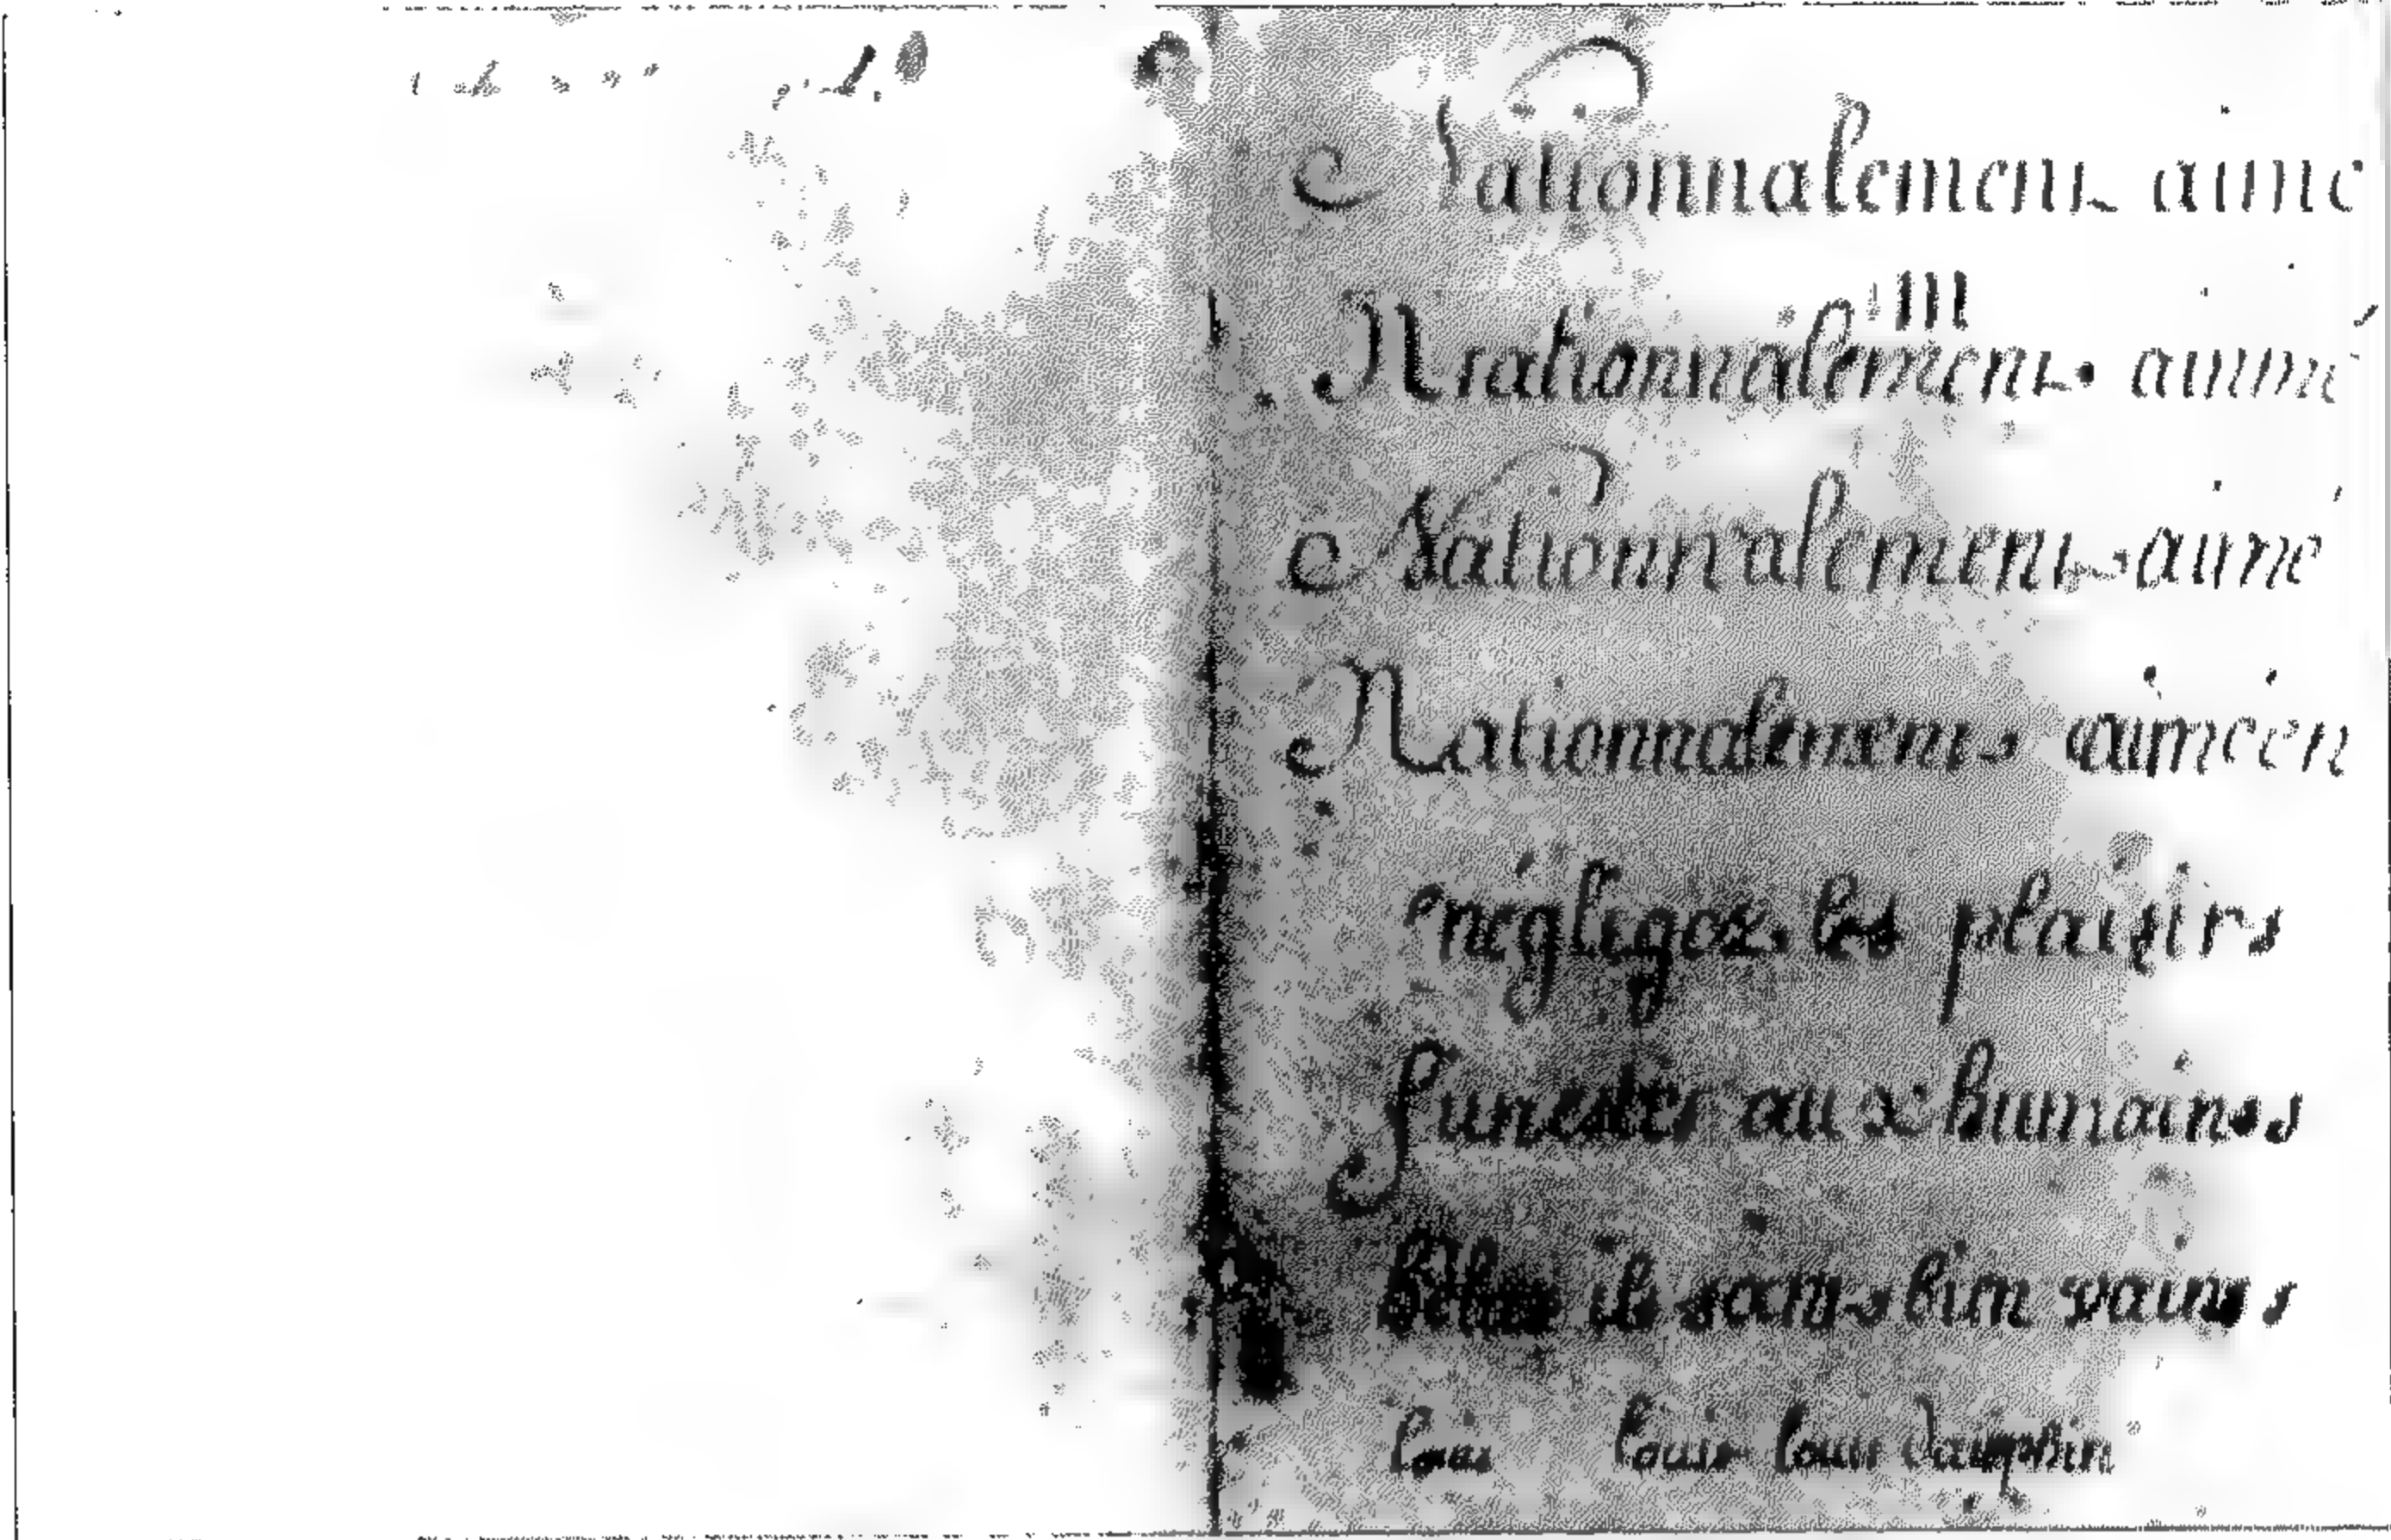 Nationnalement aime
Nrationnalement aime
Nationnalement aimé
Nationnalement aimeen
négligez les plaisirs
funestes aux humains
helas ils sont bien vains
louis louis louis dauphin